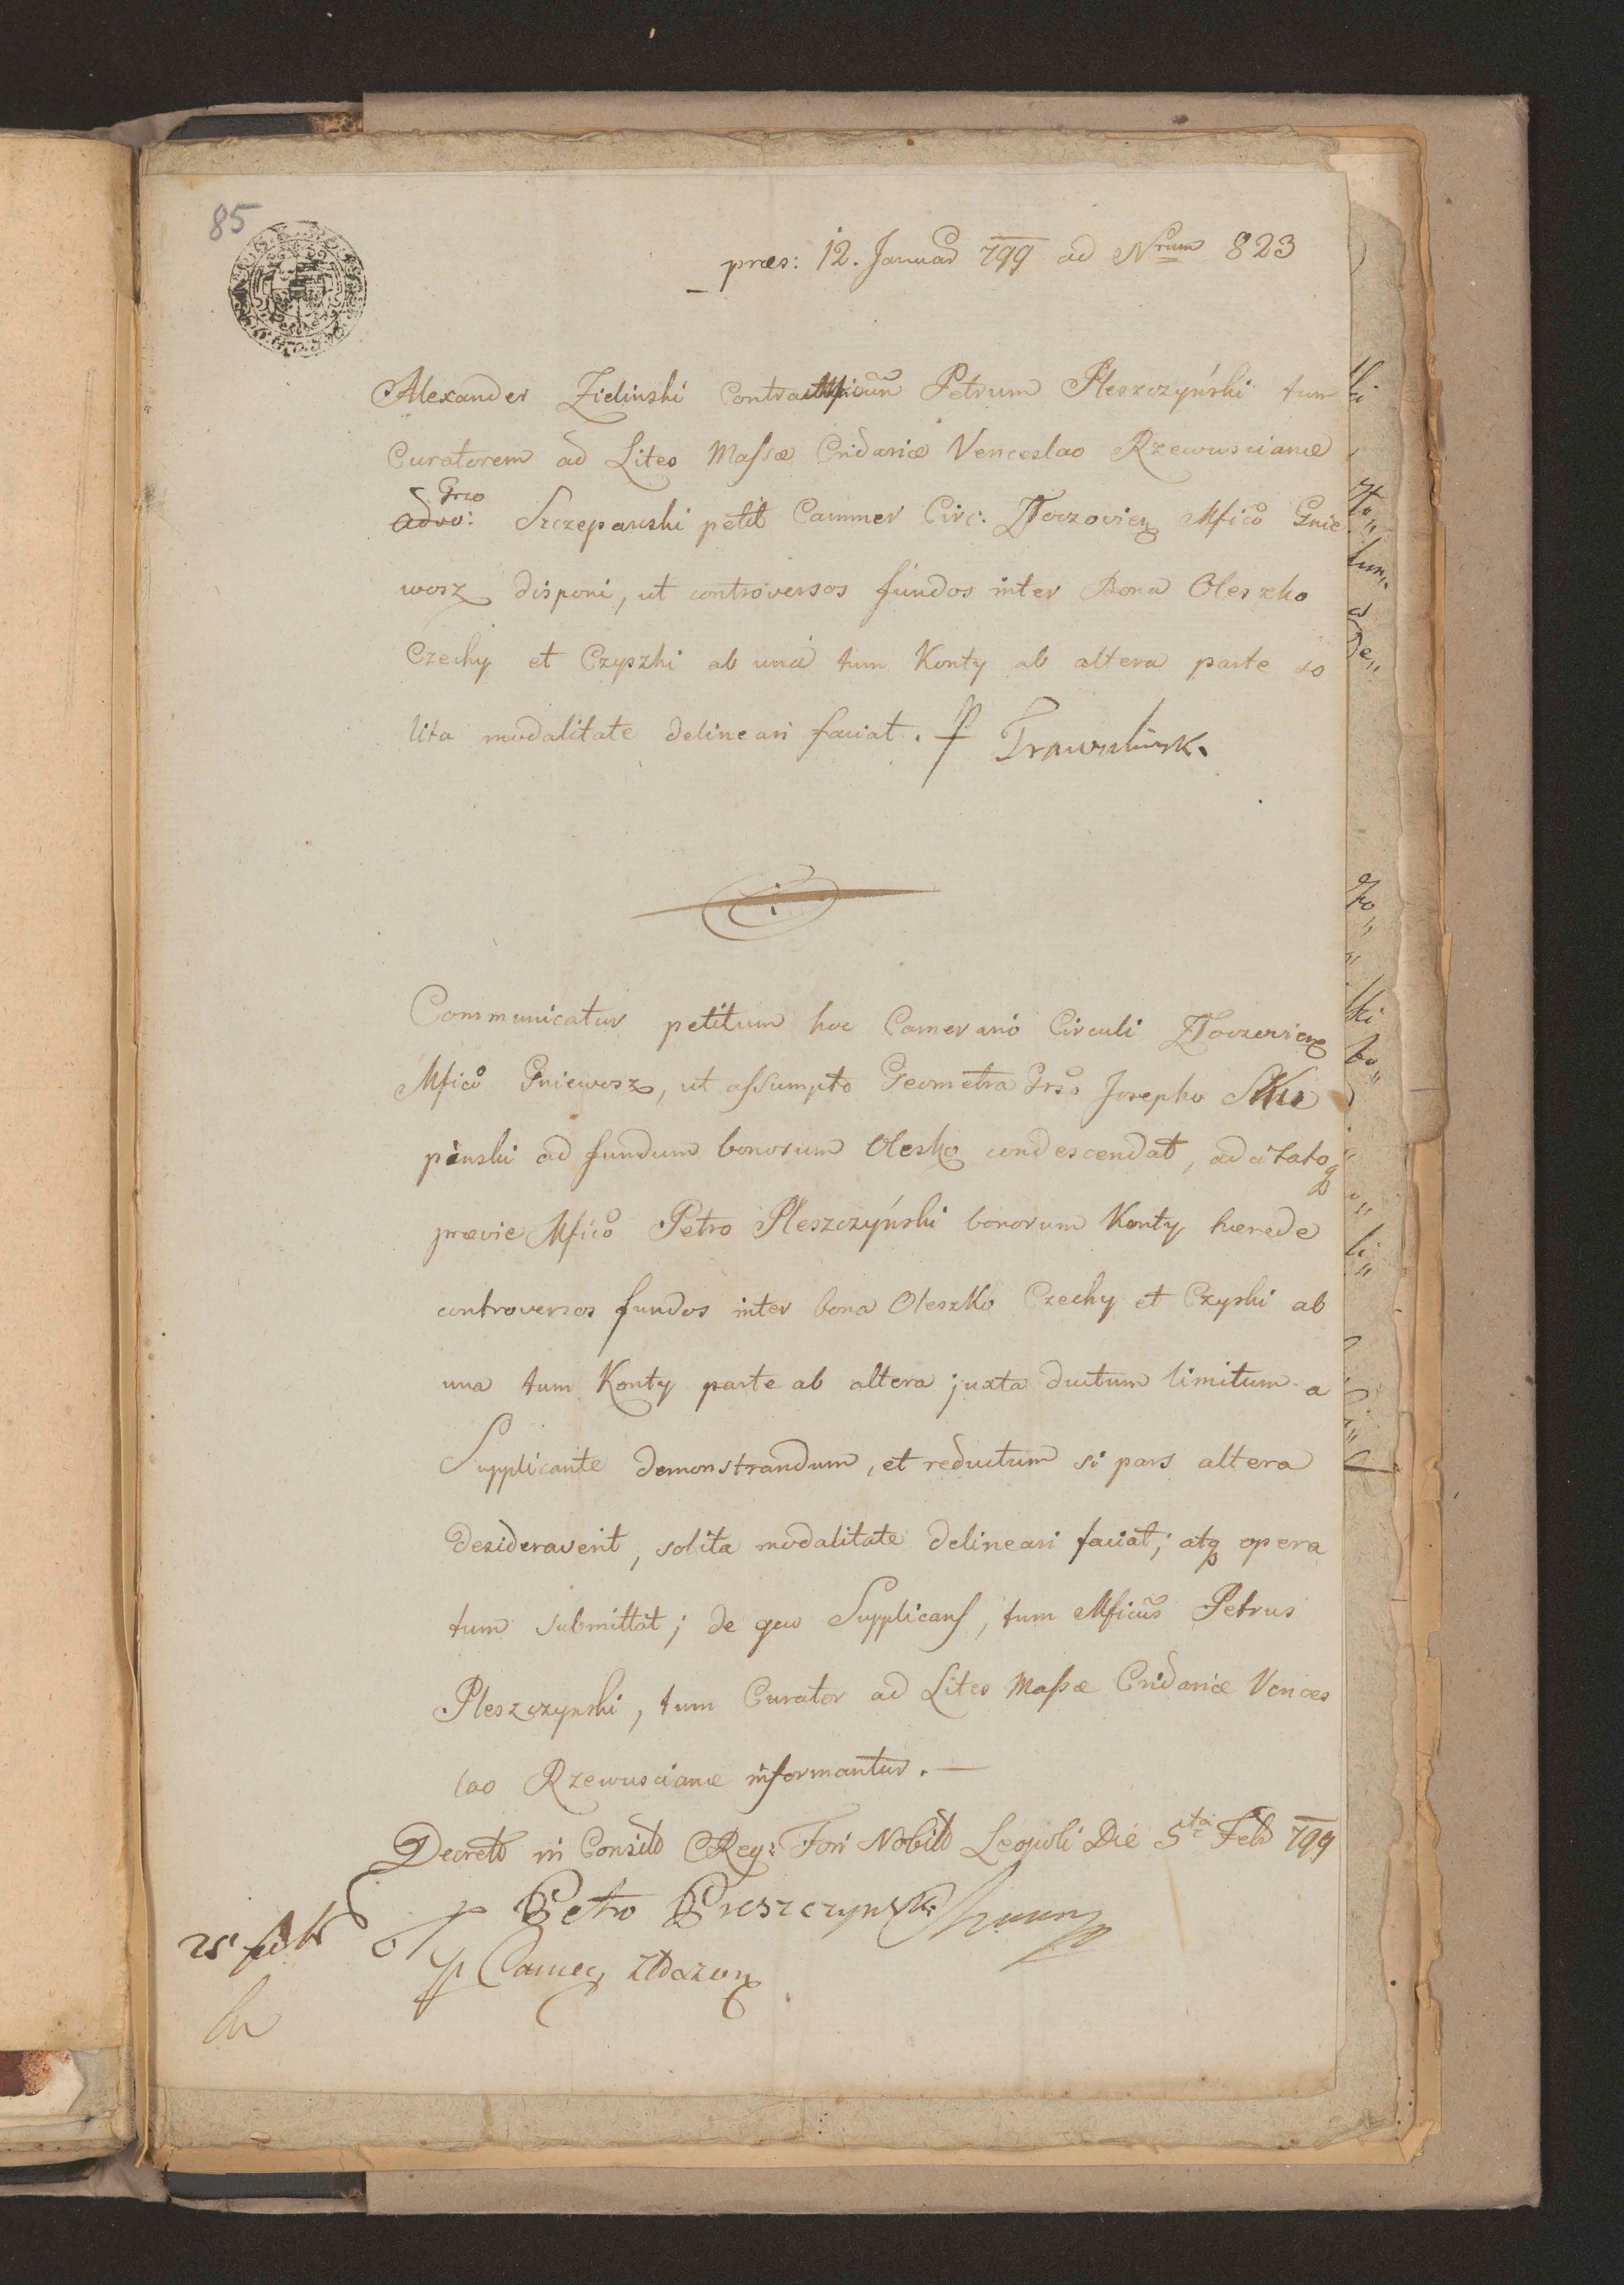 85
præs: 12. Januar 799 ad Nrum 823
Alexander Zielinski Contra Mficum Petrum Pleszczyński tum
Curatorem ad Lites Massæ Cridariæ Venceslao Rzewuscianæ
Grso
Advo: Szczepanski petit Cammer Circ: Złoczovien Mfico Gnie
wosz disponi, ut controversos fundos inter Bona Oleszko
Czechy et Czyszki ab una tum Konty ab altera parte so
lita modalitate delineari faciat.
Communicatur petitum hoc Camerario Circuli Złoczovien
Mfico Gniewosz, ut assumpto Geometra Grso Josepho
pinski ad fundum bonorum Olesko condescendat, adcitatoq
prævie Mfico Petro Pleszczyński bonorum Konty hærede
controversos fundos inter bona Oleszko Czechy et Czyski ab
una tum Konty parte ab altera juxta ductum limitum a
Supplicante demonstrandum, et reductum si pars altera
desideraverit, solita modalitate delineari faciat; atq opera
tum submittat; de quo Supplicans, tum Mficus Petrus
Pleszczynski, tum Curator ad Lites Massæ Cridariæ Vences
lao Rzewuscianæ informantur.
Decret in Consil Reg: Fori Nobil Leopoli Die 5ta Feb 799
Petro Preszczynski
25